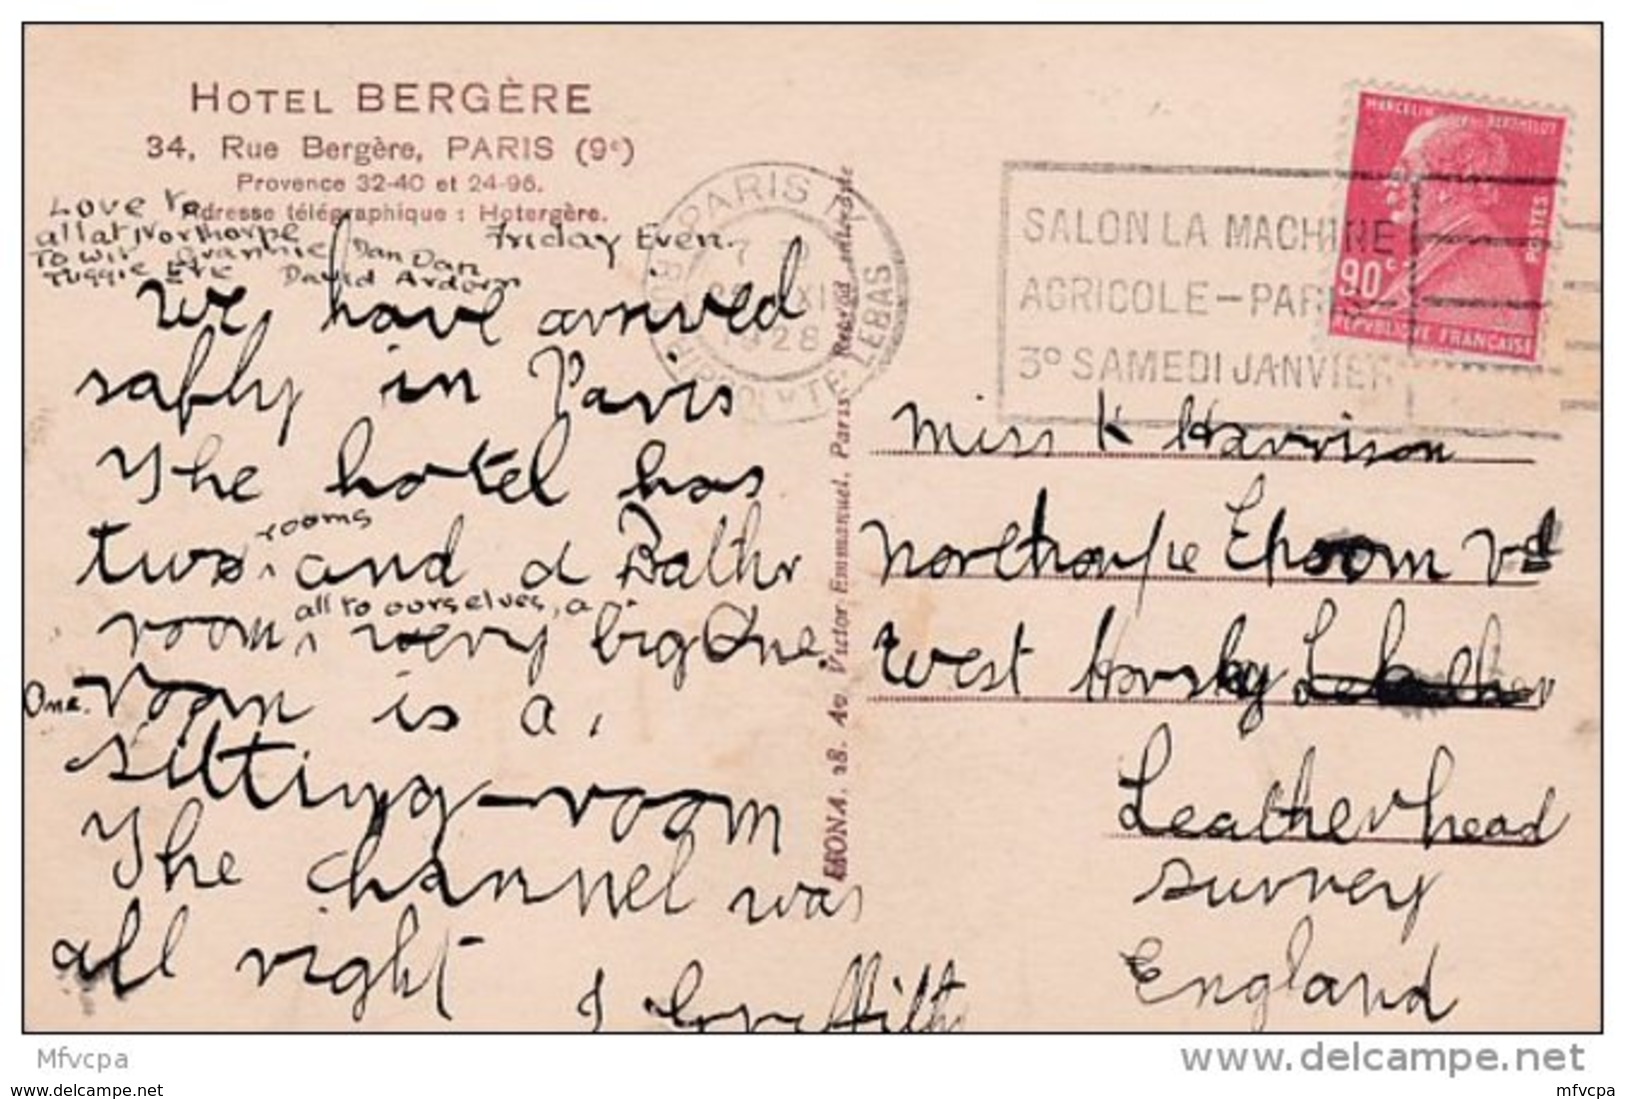 HOTEL BERGÈRE
34, Rue Bergère, PARIS (9e)
Provence 32-40 et 24-96.
Adresse télégraphique : Hotergère.
Love to
all at Northorpe
to wit Grannie Dan Dan
Tuggie Etc David Ardern
Friday Even.
We have arrived
safly in Paris
The hotel has
two rooms and a Bathr
room, all to ourselves, a very big One.
One room is a
sitting-room
The channel was
all right
I
PARIS
1928
HIPPOLYTE LEBAS
SALON LA MACHINE
AGRICOLE-PARIS
3e SAMEDI JANVIER
MARCELIN BERTHELOT
POSTES
90c
REPVBLIQVE FRANÇAISE
EKONA. 28. Av. Victor Emmanuel. Paris Reprod. interdite
Miss K Harrison
Northorpe Epsom Rd
West Horsley
Leatherhead
Surrey
England
Mfvcpa
www.delcampe.net
www.delcampe.net
mfvcpa